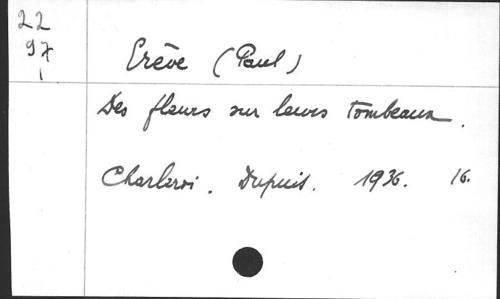 22
97
1
Erève (Paul)
Des fleurs sur leurs tombeaux.
Charleroi. Dupuis. 1936. 16.